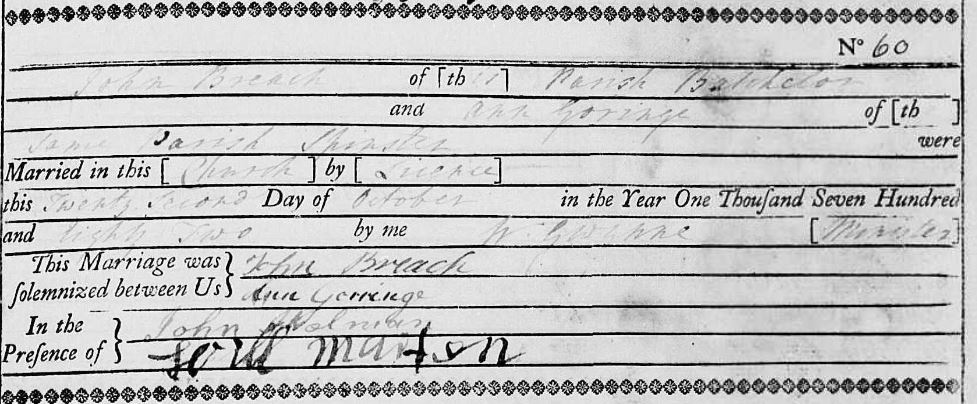 No 60
John Breach of [this] Parish Batchelor
and Ann Goringe of [th ]
Same Parish Spinster were
Married in this [Church] by [Licence]
this Twenty Second Day of October in the Year One Thouſand Seven Hundred
and Eighty Two by me W. Gwynne [Minister]
This Marriage was
ſolemnized between Us
John Breach
Ann Gorringe
In the
Preſence of
John
marton